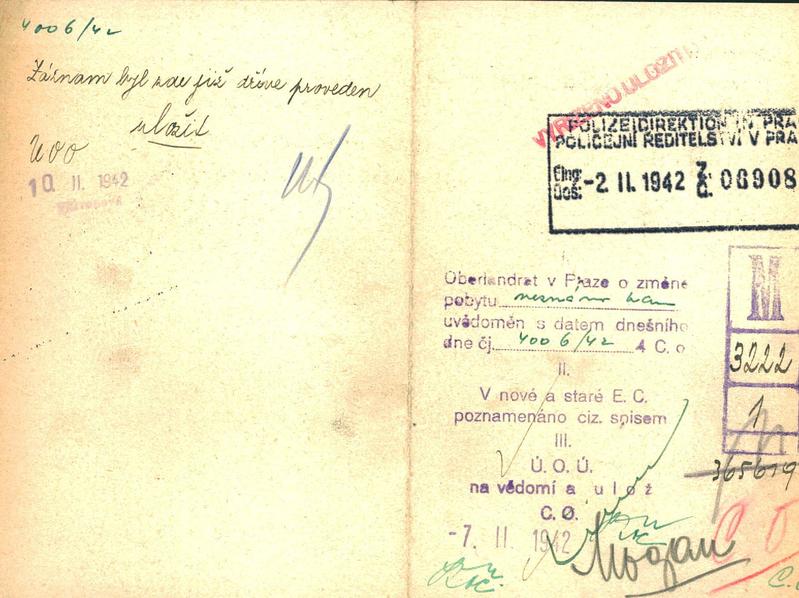 4006/42
Záznam byl zde již dříve proveden
uložit
UOO
10. II. 1942
VYŘÍZENO ULOŽITI
POLIZEIDIREKTION IN PRA
POLICEJNÍ ŘEDITELSTVÍ V PRA
Eing:
Doš:
-2. II. 1942
Z.
Č.
06908
I.
Oberlandrat v Praze o změně
pobytu neznámo kam
uvědoměn s datem dnešního
dne čj. 4006/42 4 C. o
II.
V nové a staré E. C.
poznamenáno ciz. spisem
III.
Ú. O. Ú.
na vědomí a ulož
C. O.
-7. II. 1942
M
3222
1
365619
C O